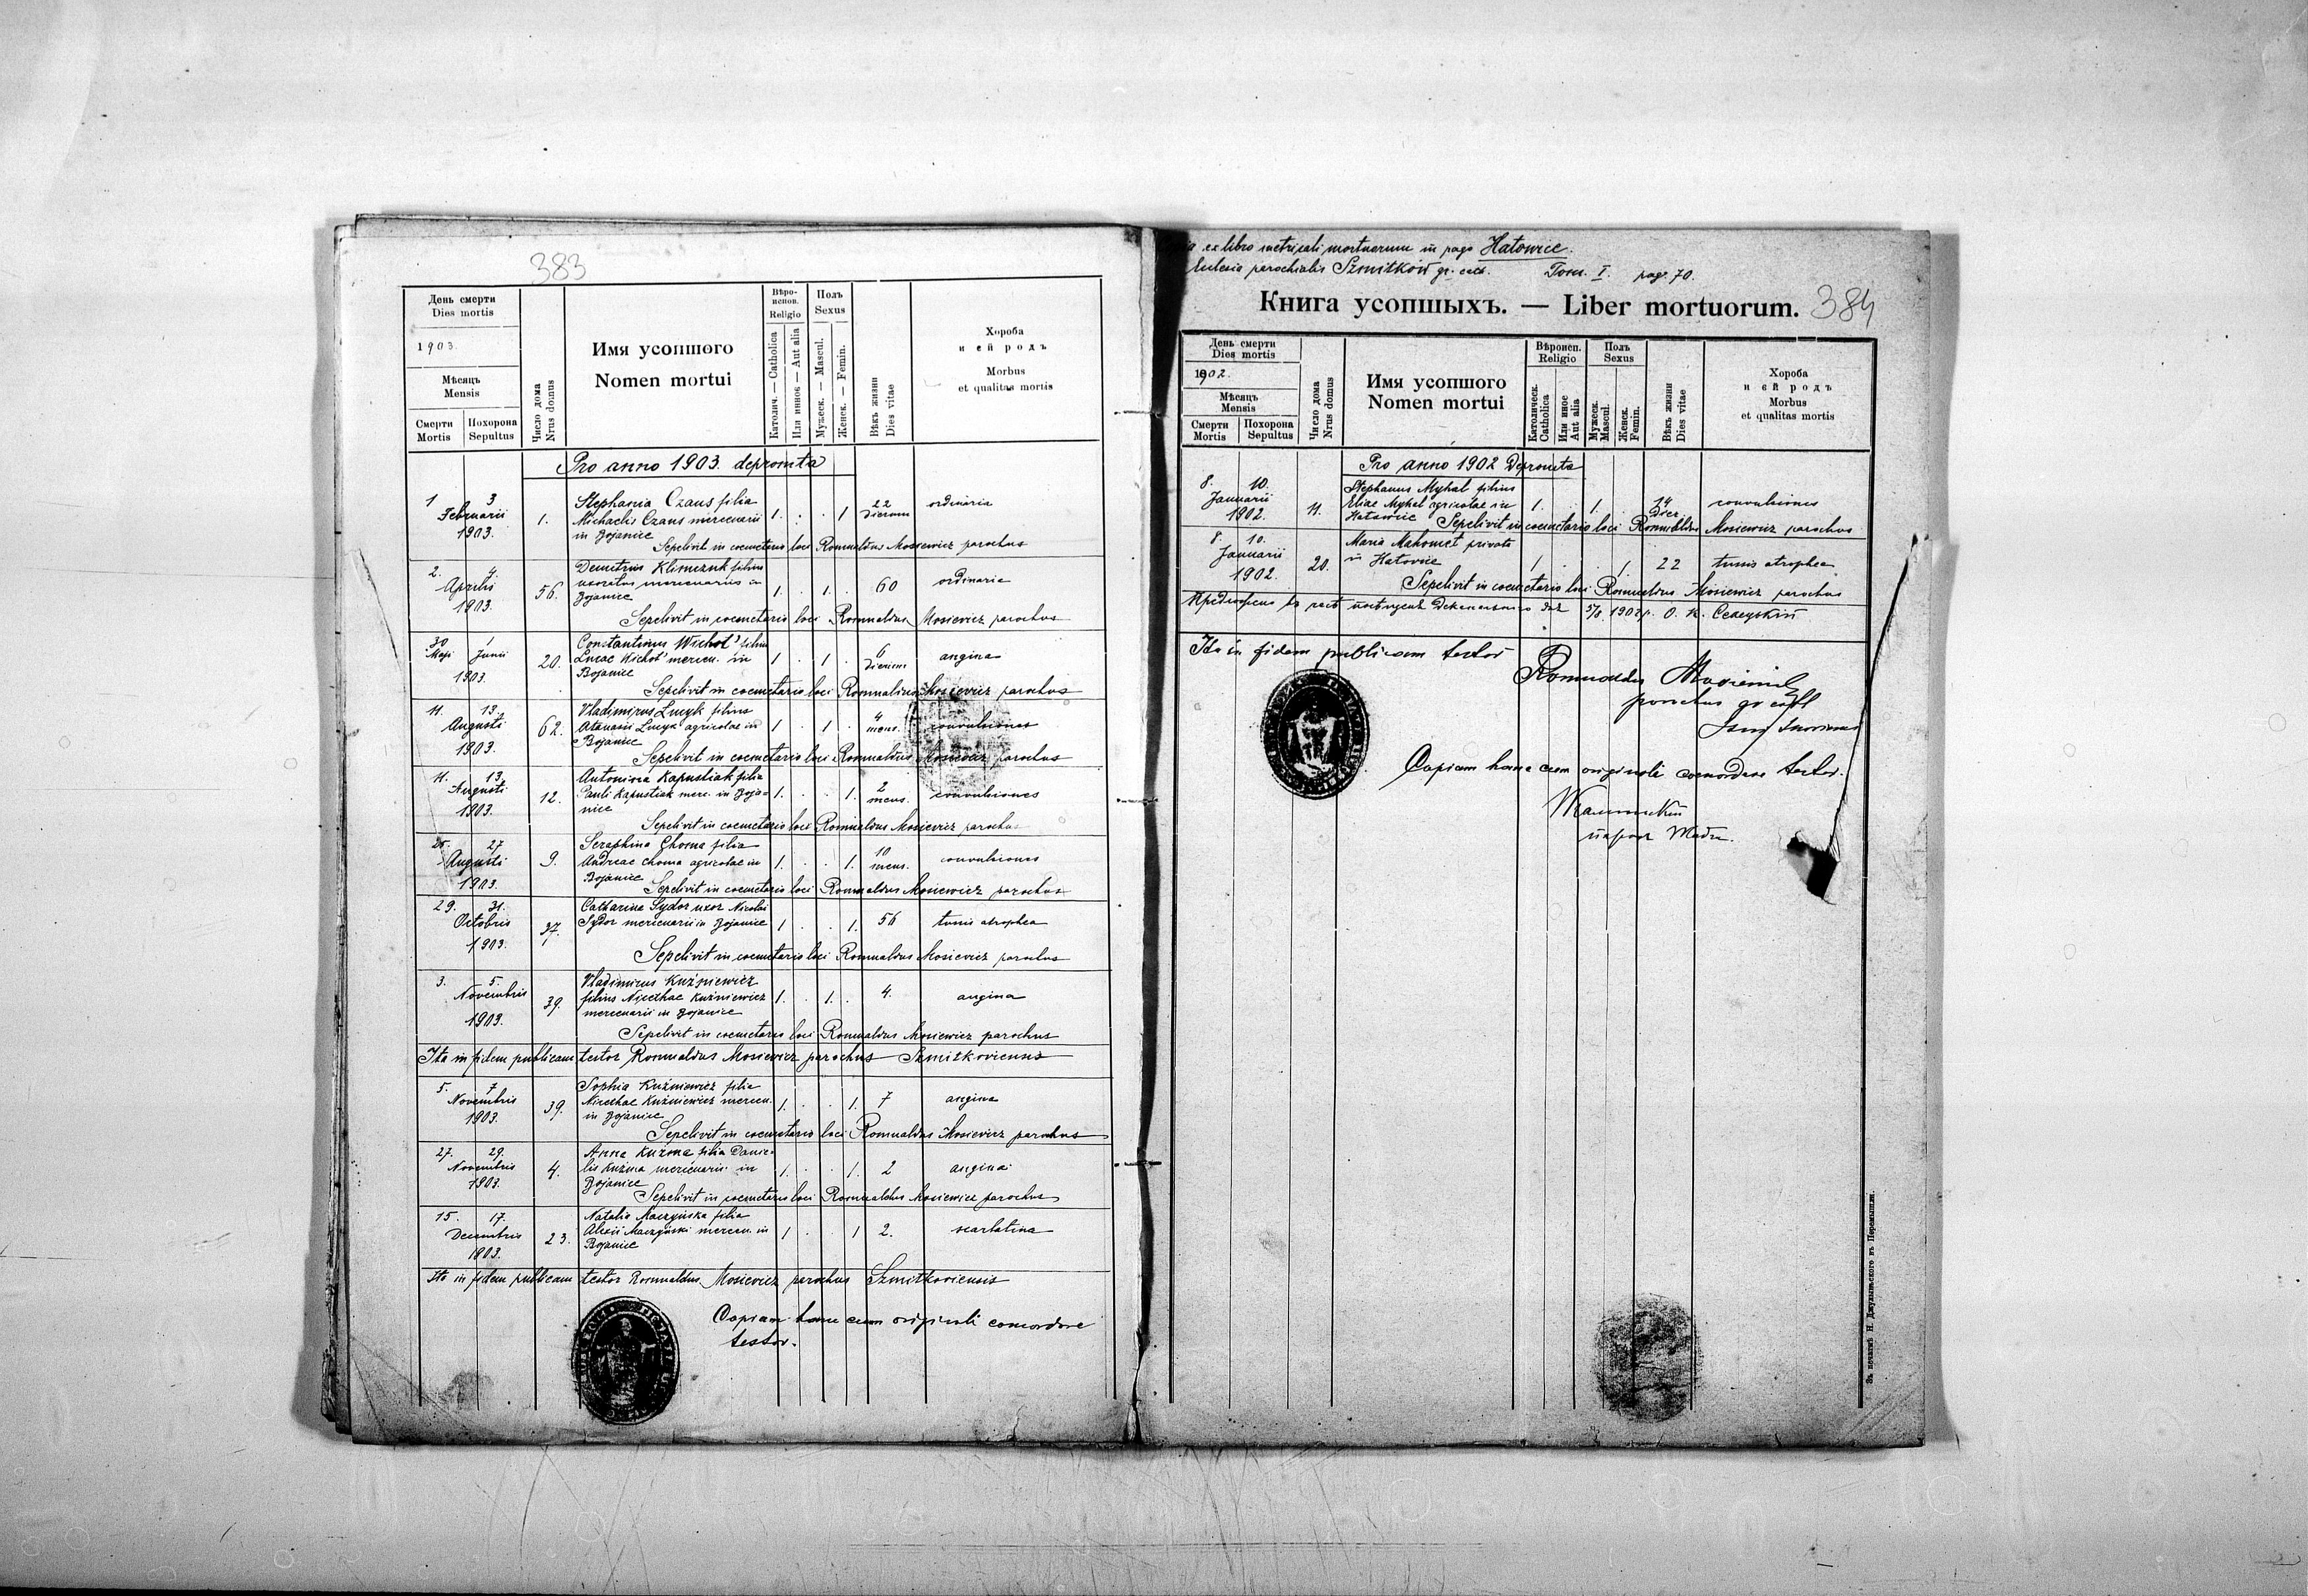 383
День смерти
Dies mortis
1903.
Мѣсяць
Mensis
Смерти
Mortis
Похорона
Sepultus
Число дома
Nrus domus
Имя усопшого
Nomen mortui
Вѣро-
испов.
Religio
Католич. — Catholica
Или инное — Aut alia
Полъ
Sexus
Мужеск. — Mascul.
Женск. — Femin.
Вѣкъ жизни
Dies vitae
Хороба
и ей родъ
Morbus
et qualitas mortis
Pro anno 1903. deprompta
1 3 Februarii 1903. 1. Stephania Czaus filia
Michaelis Czaus mercenarii
in Bojanice 1. . . 1 22 dierum ordinaria
Sepelivit in coemetario loci Romualdus Mosiewicz parochus
2. 4. Aprilis 1903. 56. Demetrius Klimczuk filius
uxoratus mercenarius in
Bojanice 1. . 1. . 60 ordinaria
Sepelivit in coemetario loci Romualdus Mosiewicz parochus
30 Maji 1 Junii 1903. 20. Constantinus Wichot' filius
Lucae Wichot' mercen. in
Bojanice 1 . 1 . 6 dierum angina
Sepelivit in coemetario loci Romualdus Mosiewicz parochus
11. 13. Augusti 1903. 62. Vladimirus Lucyk filius
Atanasii Lucyk agricolae in
Bojanice 1 . 1 . 4 mens. convulsiones
Sepelivit in coemetario loci Romualdus Mosiewicz parochus
11. 13. Augusti 1903. 12. Antonina Kapustiak filia
Pauli Kapustiak merc. in Boja=
nice 1. . . 1. 2 mens. convulsiones
Sepelivit in coemetario loci Romualdus Mosiewicz parochus
25. 27 Augusti 1903. 9. Seraphina Choma filia
Andreae Choma agricolae in
Bojanice 1. . . 1. 10 mens. convulsiones
Sepelivit in coemetario loci Romualdus Mosiewicz parochus
29. 31. Octobris 1903. 37. Catharina Sydor uxor Nicolai
Sydor mercenarii in Bojanice 1 . . 1. 56 tussis atrophea
Sepelivit in coemetario loci Romualdus Mosiewicz parochus
3. 5. Novembris 1903. 39. Vladimirus Kuźniewicz
filius Nicethae Kuźniewicz
mercenarii in Bojanice 1. . 1. . 4. angina
Sepelivit in coemetario loci Romualdus Mosiewicz parochus
Ita in fidem publicam testor Romualdus Mosiewicz parochus Szmitkoviensis
5. 7 Novembris 1903. 39. Sophia Kuźniewicz filia
Nicethae Kuźniewicz mercen.
in Bojanice 1. . . 1. 7 angina
Sepelivit in coemetario loci Romualdus Mosiewicz parochus
27. 29. Novembris 1903. 4. Anna Kuźma filia Danie-
lis Kuźma mercenarii in
Bojanice 1. . . 1. 2 angina
Sepelivit in coemetario loci Romualdus Mosiewicz parochus
15. 17. Decembris 1903. 23. Natalia Maczyńska filia
Alexii Maczyński mercen. in
Bojanice 1 . . 1 2. scarlatina
Ita in fidem publicam testor Romualdus Mosiewicz parochus Szmitkoviensis
Copiam hanc cum originali concordare
testor.
ex libro metricali mortuorum in pago Hatowice.
Eccelsia parochialis Szmitków gr. cath. Tom. I. pag. 70.
Книга усопшыхъ. — Liber mortuorum. 384
День смерти
Dies mortis
1902.
Мѣсяць
Mensis
Смерти
Mortis
Похорона
Sepultus
Число дома
Nrus domus
Имя усопшого
Nomen mortui
Вѣроисп.
Religio
Католическ.
Catholica
Или иное
Aut alia
Полъ
Sexus
Мужеск.
Mascul.
Женск.
Femin.
Вѣкъ жизни
Dies vitae
Хороба
и ей родъ
Morbus
et qualitas mortis
Pro anno 1902 deprompta
8. 10. Januarii 1902. 11. Stephanus Myhal filius
Eliae Myhal agricolae in
Hatowice 1. . 1. . 14 dier. convulsiones
Sepelivit in coemetario loci Romualdus Mosiewicz parochus
8. 10. Januarii 1902. 20. Maria Mahomet privata
in Hatowice 1 . . 1. 22 tussis atrophea
Sepelivit in coemetario loci Romualdus Mosiewicz parochus
1902 р. О. К. Селецкій
Ita in fidem publicam testor
Romualdus Mosiewicz
parochus gr cath
Copiam hanc cum originali concordare testor.
Зъ печатнѣ Н. Джулыньского въ Перемышли.